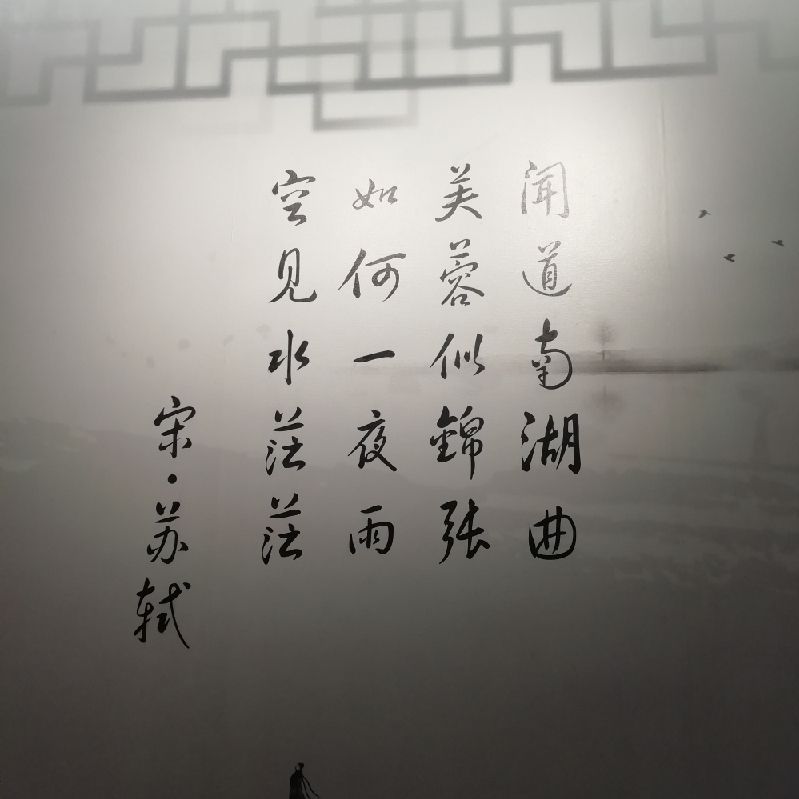 闻道南湖曲
芙蓉似錦张
如何一夜雨
空见水茫茫
宋·苏轼